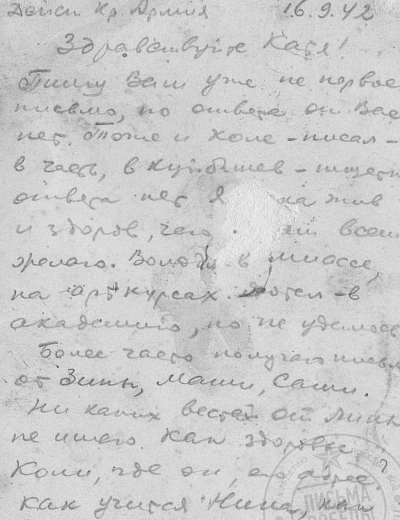 Действ Кр. Армия 16.9.42
Здравствуйте Катя!
Пишу Вам уже не первое
письмо, но ответа от Вас
нет. Тоже и Коле - писал -
в часть, в Куйбышев - тщетн
ответа нет. Я жив
и здоров, чего всем
желаю. Володя в Миассе,
на арткурсах. Хотел - в
академию, но не удалось
Более часто получаю письм
от Зины, Маши, Саши.
Ни каких вестей от
не имею. Как здоровье
Коли, где он, его адрес?
Как учится Нина,
ПИСЬМА